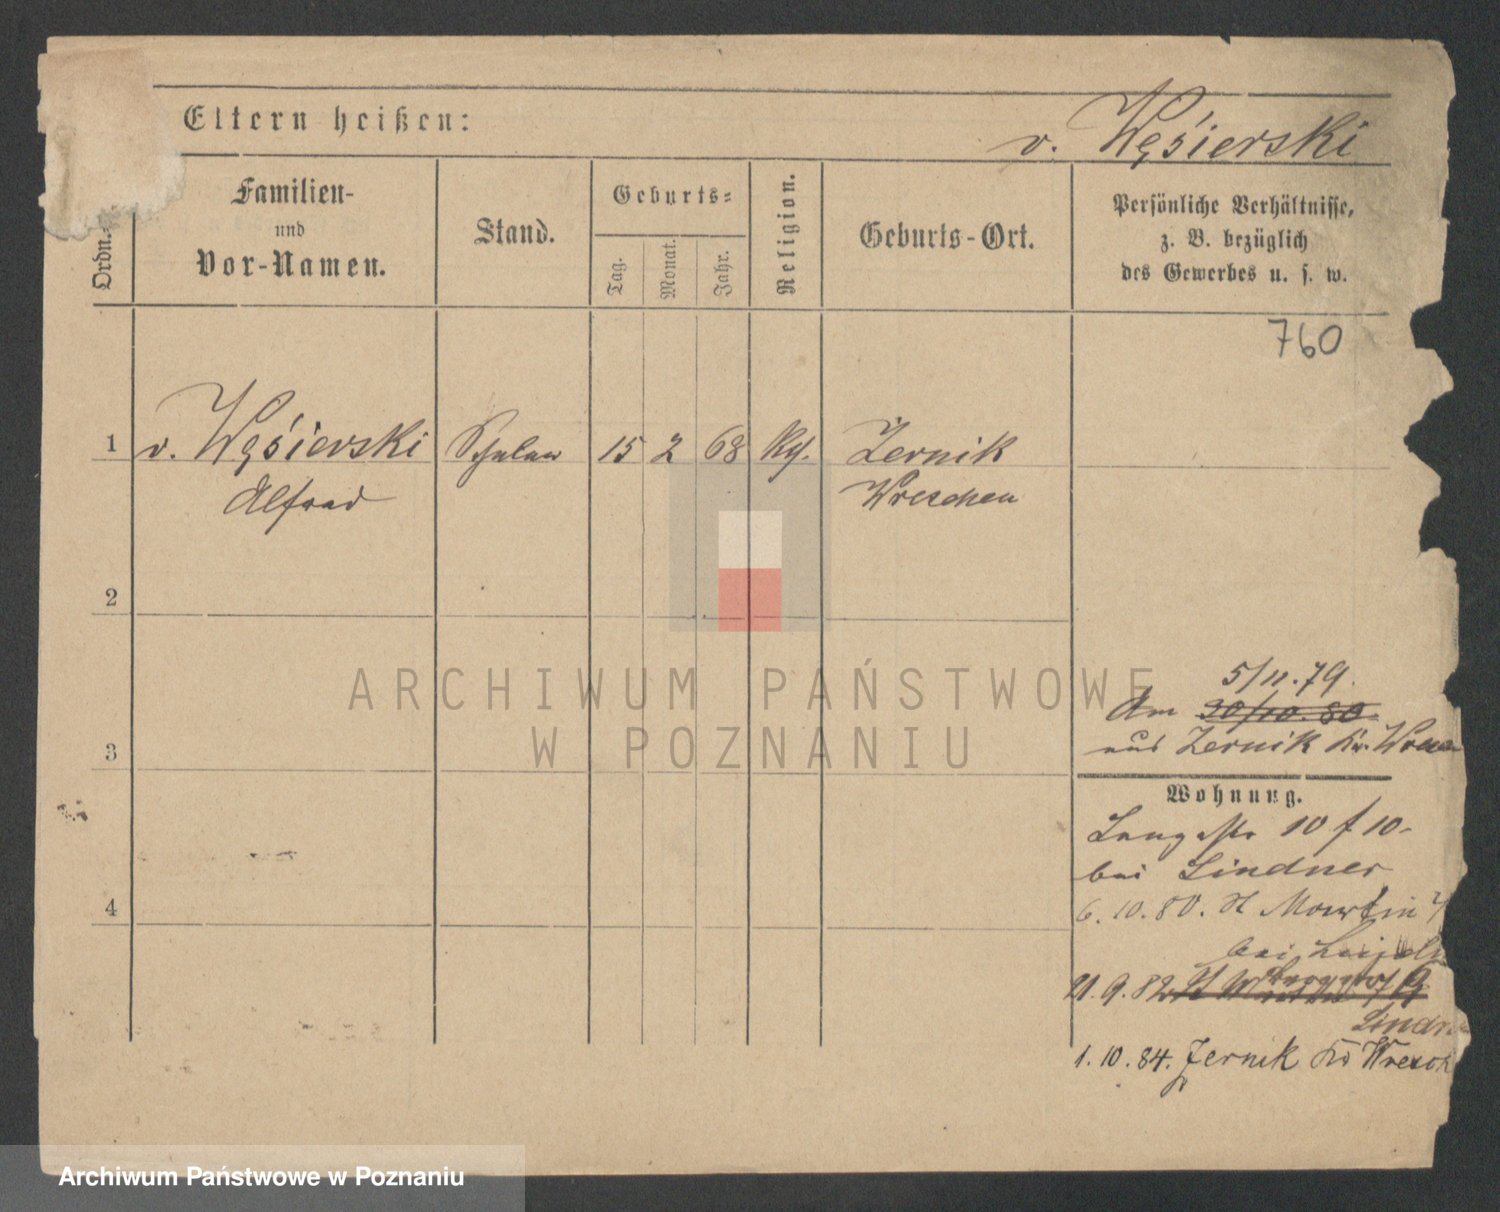 Eltern heißen:
v. Węsierski
Ordn.-
Familien-
und
Vor-Namen.
Stand.
Geburts-
Tag.
Monat.
Jahr.
Religion.
Geburts-Ort.
Persönliche Verhältnisse,
z. B. bezüglich
des Gewerbes u. s. w.
760
1 v. Węsierski Schüler 15 2 68 Kth. Zernik
Alfred Wreschen
2
3
4
5/11.79.
Am 30/10.80.
aus Zernik Kr. Wresc
Wohnung.
Langestr 10 f 10-
bei Lindner
6.10.80. St Martin
bei
21.9.82 St
Lindn
1.10.84. Zernik Wresch
ARCHIWUM PAŃSTWOWE
W POZNANIU
Archiwum Państwowe w Poznaniu